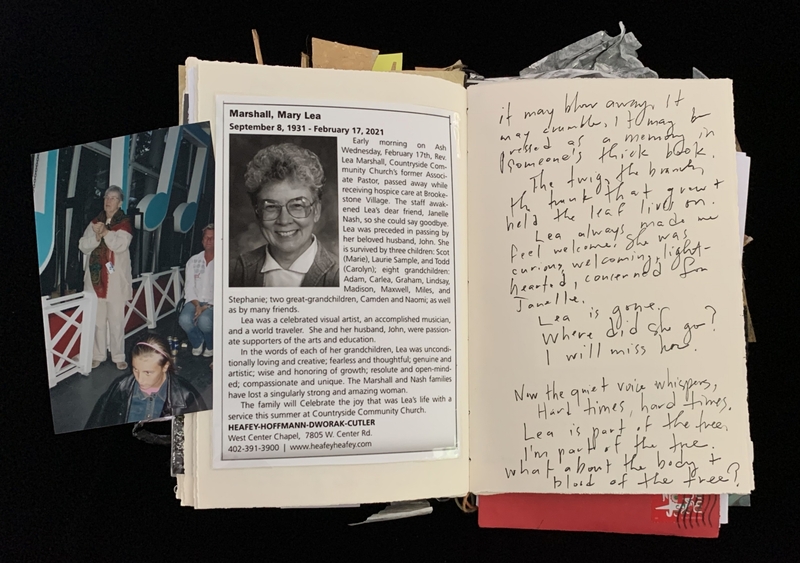 Marshall, Mary Lea
September 8, 1931 - February 17, 2021
Early morning on Ash
Wednesday, February 17th, Rev.
Lea Marshall, Countryside Com-
munity Church's former Associ-
ate Pastor, passed away while
receiving hospice care at Brooke-
stone Village. The staff awak-
ened Lea's dear friend, Janelle
Nash, so she could say goodbye.
Lea was preceded in passing by
her beloved husband, John. She
is survived by three children: Scot
(Marie), Laurie Sample, and Todd
(Carolyn); eight grandchildren:
Adam, Carlea, Graham, Lindsay,
Madison, Maxwell, Miles, and
Stephanie; two great-grandchildren, Camden and Naomi; as well
as by many friends.
Lea was a celebrated visual artist, an accomplished musician,
and a world traveler. She and her husband, John, were passion-
ate supporters of the arts and education.
In the words of each of her grandchildren, Lea was uncondi-
tionally loving and creative; fearless and thoughtful; genuine and
artistic; wise and honoring of growth; resolute and open-mind-
ed; compassionate and unique. The Marshall and Nash families
have lost a singularly strong and amazing woman.
The family will Celebrate the joy that was Lea's life with a
service this summer at Countryside Community Church.
HEAFEY-HOFFMANN-DWORAK-CUTLER
West Center Chapel, 7805 W. Center Rd.
402-391-3900 | www.heafeyheafey.com
it may blow away. It
may crumble, it may be
pressed as a memory in
someone's thick book.
The twig, the branch,
the trunk that grew +
held the leaf lives on.
Lea always made me
feel welcome. She was
curious, welcoming, light-
hearted, concerned for
Janelle.
Lea is gone.
Where did she go?
I will miss her.
Now the quiet voice whispers,
Hard times, hard times.
Lea is part of the tree,
I'm part of the tree.
What about the body +
blood of the tree?